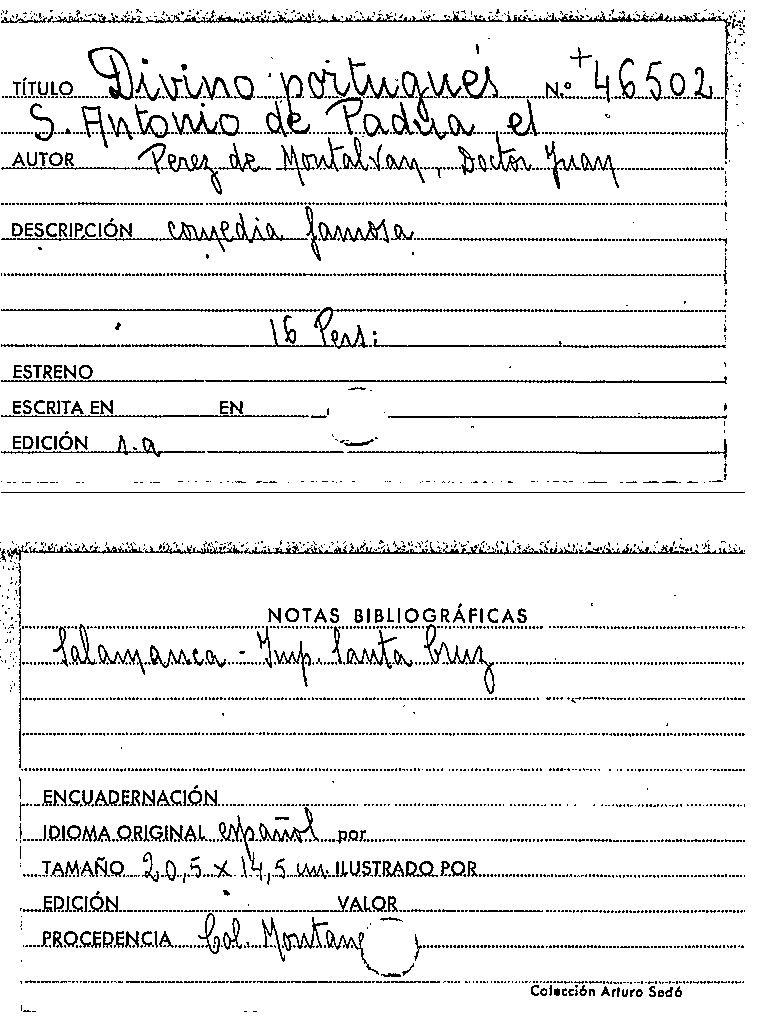 TÍTULO Divino portugués N.º +46502
S. Antonio de Padua, el
AUTOR Perez de Montalvan, Doctor Juan
DESCRIPCIÓN comedia famosa
16 Pers:
ESTRENO
ESCRITA EN EN
EDICIÓN s.a
NOTAS BIBLIOGRÁFICAS
Salamanca - Imp. Santa Cruz
ENCUADERNACIÓN
IDIOMA ORIGINAL español por
TAMAÑO 20,5 x 14,5 cm. ILUSTRADO POR
EDICIÓN VALOR
PROCEDENCIA Col. Montane
Colección Arturo Sedó